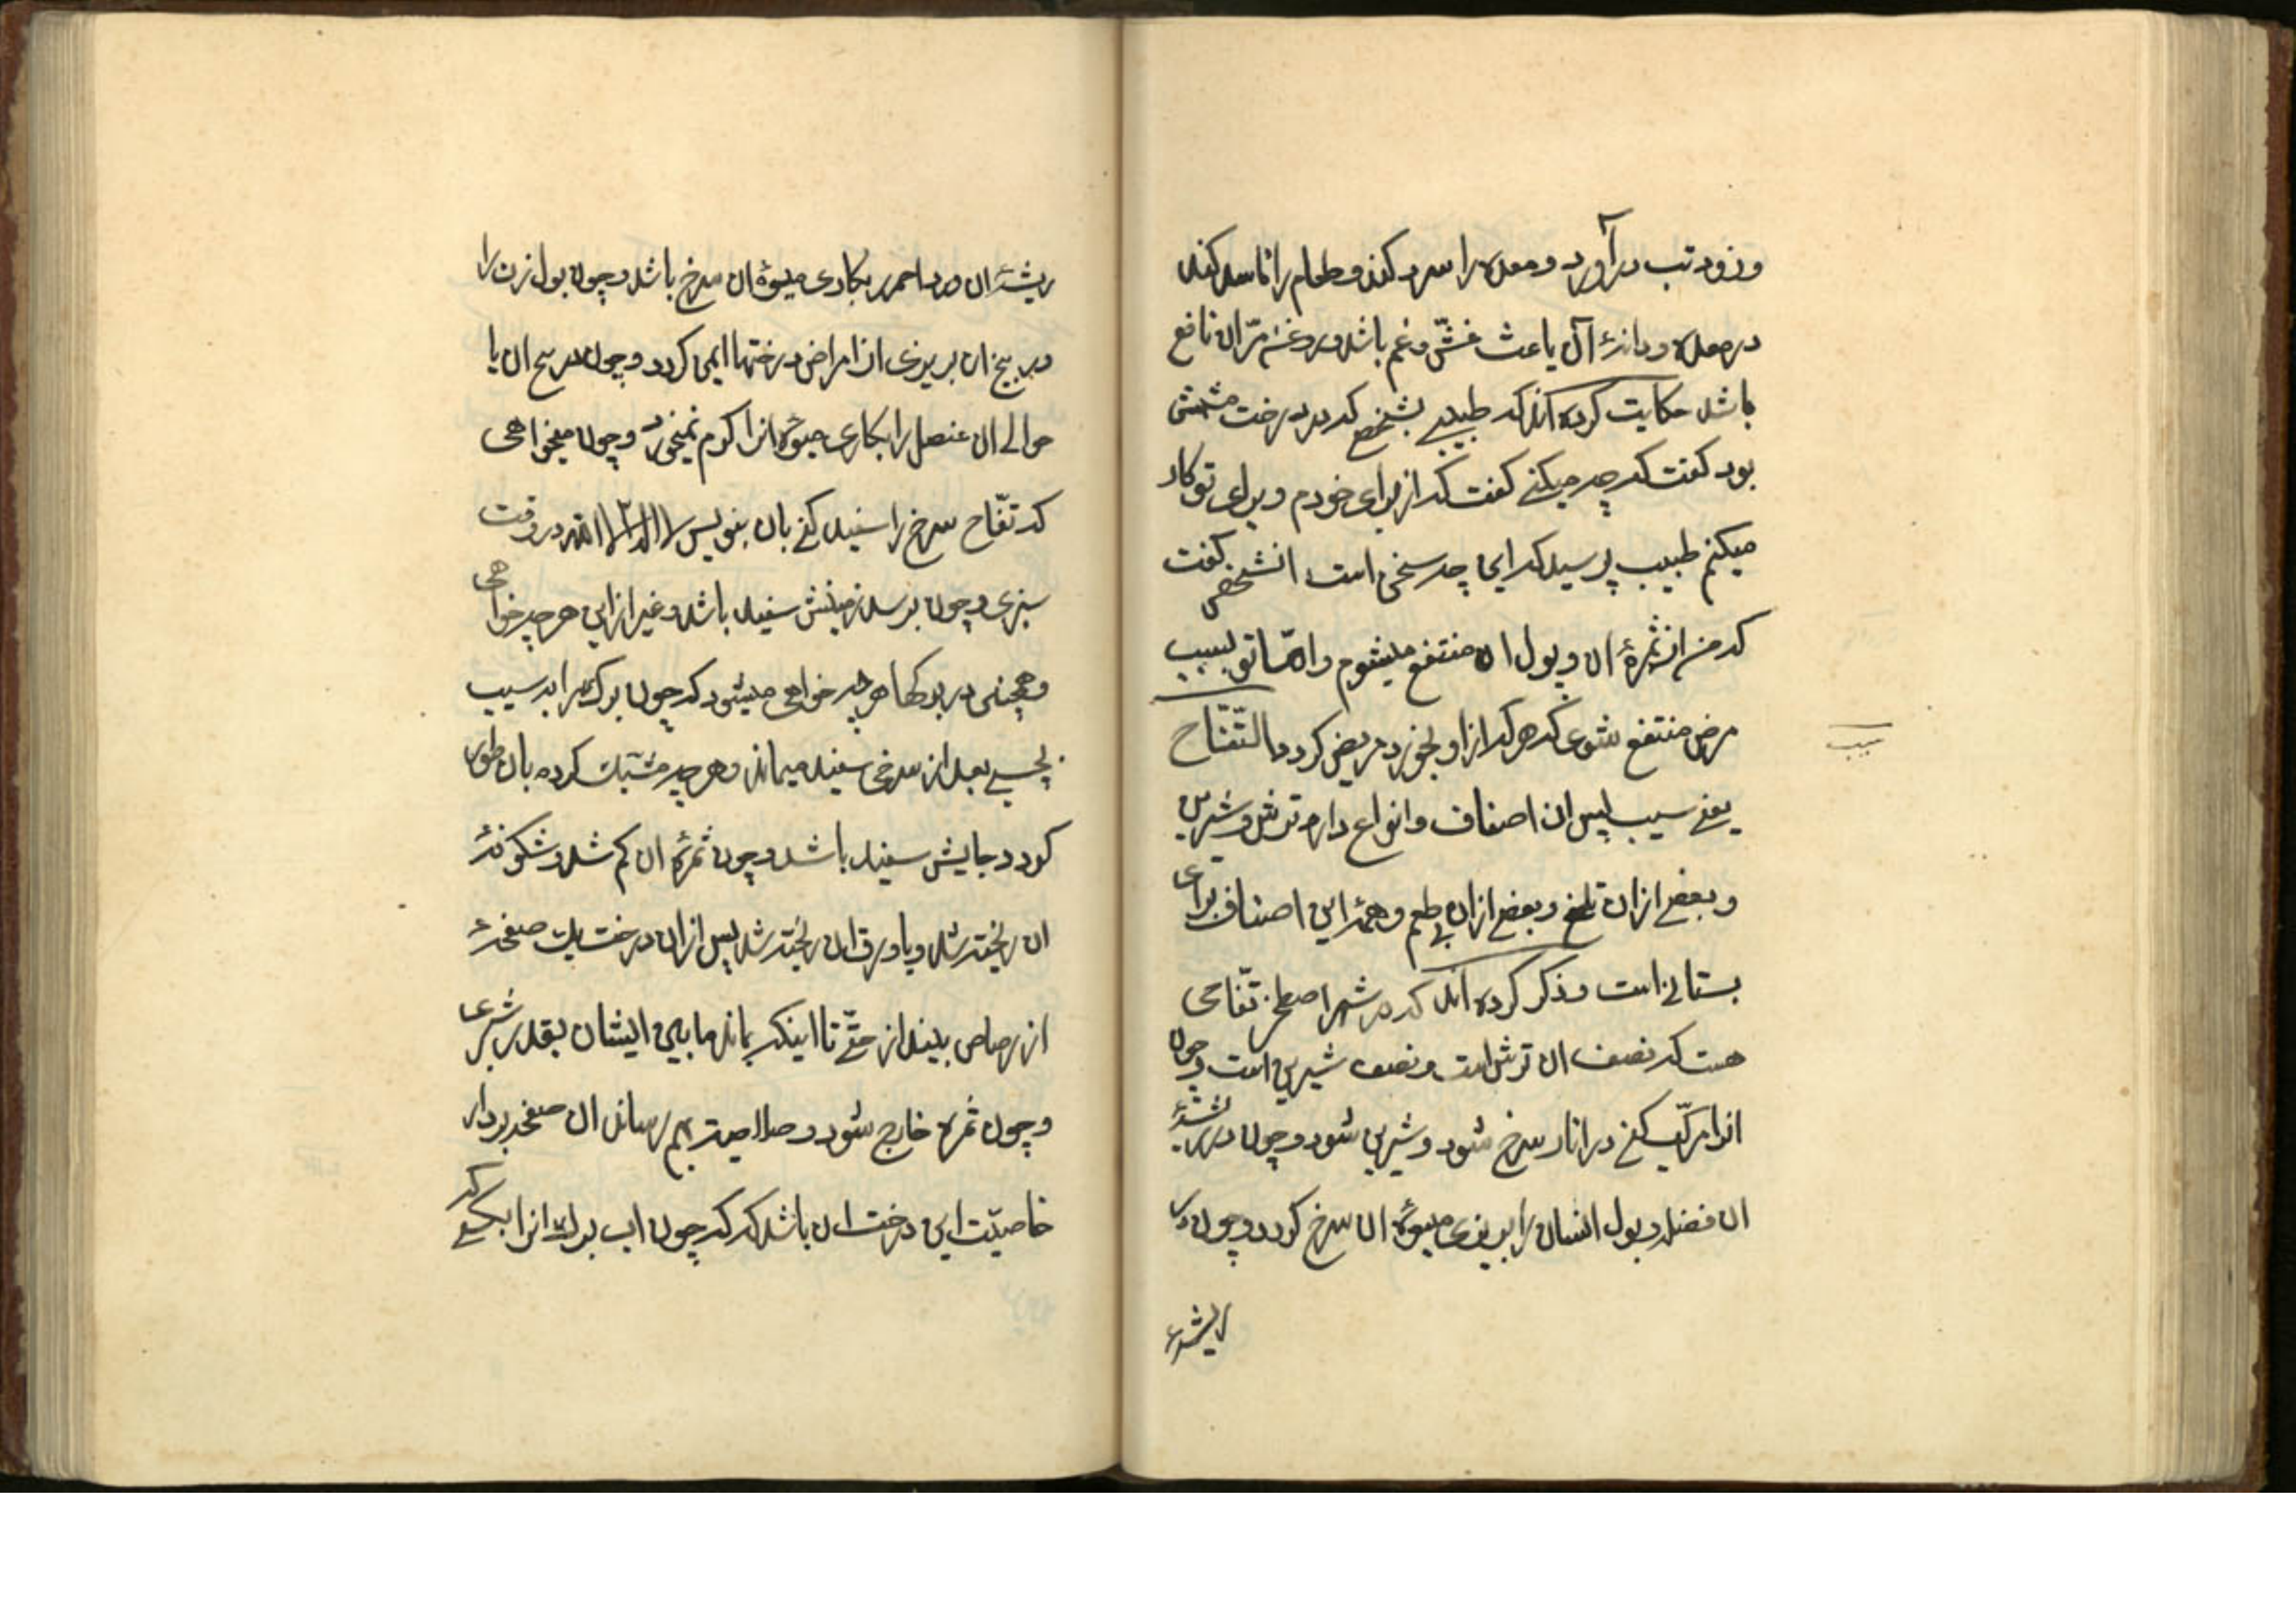 و زود تب درآورد و معده را سرد کند و طعام را فاسد کند
در معده و دانهٔ آن باعث غشّ و غم باشد و روغن مرّ ان نافع
باشد حکایت کرده اند که طبیبی بشخص که در درخت مشمش
بود کفت که چه میکنی کفت که از برای خودم و برای تو کار
میکنم طبیب پرسید که این چه سخن است انشخص کفت
که من از ثمرهٔ ان و پول ان منتفع میشوم و امّا تو بسبب
مرض منتفع شوی که هر که از او بخورد مریض کردد التّفّاح
سیب
یعنی سیب پس ان اصناف و انواع دارد ترش و شیرین
و بعضی از ان تلخ و بعضی از ان بی طعم و همهٔ این اصناف برای
بستانی است و ذکر کرده اند که در شهر اصطخر تفّاحی
هست که نصف ان ترش است و نصف شیرین است و چون
انرا مرکّب کنی در انار سرخ شود و شیرین شود و چون در ریشهٔ
ان فضله و بول انسان را بریزی میوهٔ ان سرخ کردد و چون در
ریشهٔ
ریشهٔ ان ورد احمر بکاری میوهٔ ان سرخ باشد و چون بول زن را
در بیخ ان بریزی از امراض درختها ایمن کردد و چون در بیخ ان یا
حوالی ان عنصل را بکاری میوهٔ انرا کرم نمیخورد و چون میخواهی
که تفّاح سرخ را سفید کنی بان بنویس لا اله الا الله در وقت
سبزی و چون برسد زمینش سفید باشد و غیر از این هر چه خواهی
و همچنین در برکها هر چه خواهی میشود که چون برک را به سیب
بچسبی بعد از سرخی سفید میماند و هر چه مشبّک کرده بان طور
کردد و جایش سفید باشد و چون ثمرهٔ ان کم شد و شکوفهٔ
ان ریخته شد و یا ورق ان ریخته شد پس از ان درخت یک صفحهٔ
از رصاص بیند از حتّی تا اینکه بماند مابین ایشان بقدر شبری
و چون ثمره خارج شود و صلاحیت بهم رساند ان صفحه بردار
خاصیّت این درخت ان باشد که که چون اب برک انرا بکیری
که